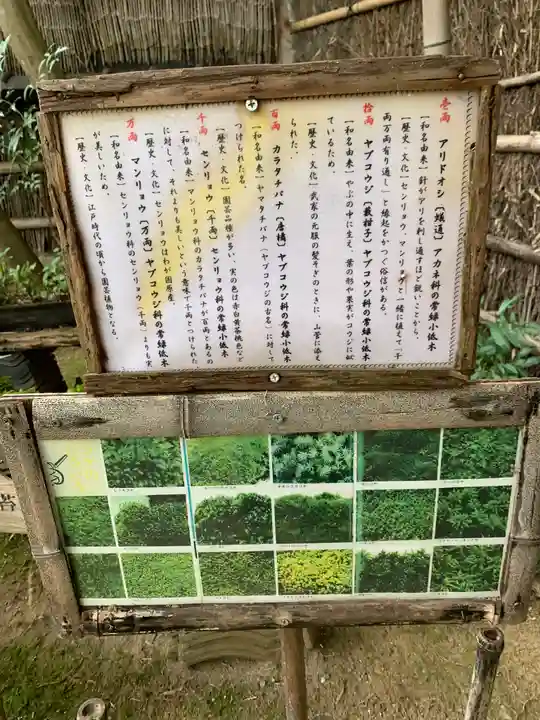 壱両　アリドオシ［蟻通］アカネ科の常緑小低木
［和名由来］針がアリを刺し通すほど鋭いことから。
［歴史、文化］センリョウ、マンリョウと一緒に植えて「千
両万両有り通し」と縁起をかつぐ俗信がある。
拾両　ヤブコウジ［藪柑子］ヤブコウジ科の常緑小低木
［和名由来］やぶの中に生え、葉の形や果実がコウジに似
ているため。
［歴史、文化］武家の元服の髪そぎのときに、山菅に添え
られた。
百両　カラタチバナ［唐橘］ヤブコウジ科の常緑小低木
［和名由来］ヤマタチバナ（ヤブコウジの古名）に対して
つけられた名。
［歴史、文化］園芸品種が多い、実の色は赤白黄茶桃色など
千両　センリョウ［千両］センリョウ科の常緑小低木
［和名由来］マンリョウ科のカラタチバナが百両とあるの
に対して、それよりも美しいという意味で千両とつけられた
［歴史、文化］センリョウはわが国原産。
万両　マンリョウ［万両］ヤブコウジ科の常緑低木
［和名由来］センリョウ科のセンリョウ（千両）よりも実
が美しいため。
［歴史、文化］江戸時代の頃から園芸植物となる。
苔